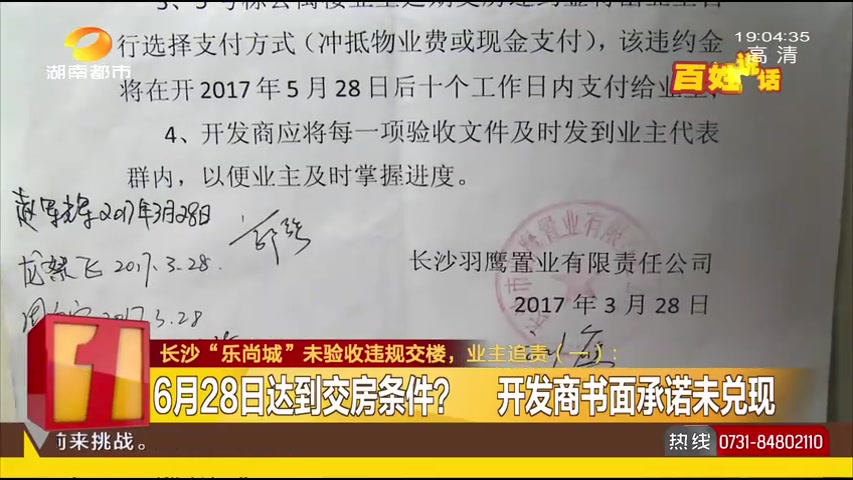 3、3号栋公寓楼业主延期交房违约金将由业主自
行选择支付方式（冲抵物业费或现金支付），该违约金
将在开2017年5月28日后十个工作日内支付给业主；
4、开发商应将每一项验收文件及时发到业主代表
群内，以便业主及时掌握进度。
湖南都市
19:04:35
高清
百姓说话
2017年3月28日
龙 飞 2017.3.28.
2017.3.28
长沙羽鹰置业有限责任公司
2017年3月28日
1
长沙“乐尚城”未验收违规交楼，业主追责（一）：
6月28日达到交房条件？ 开发商书面承诺未兑现
来挑战。
热线 0731-84802110